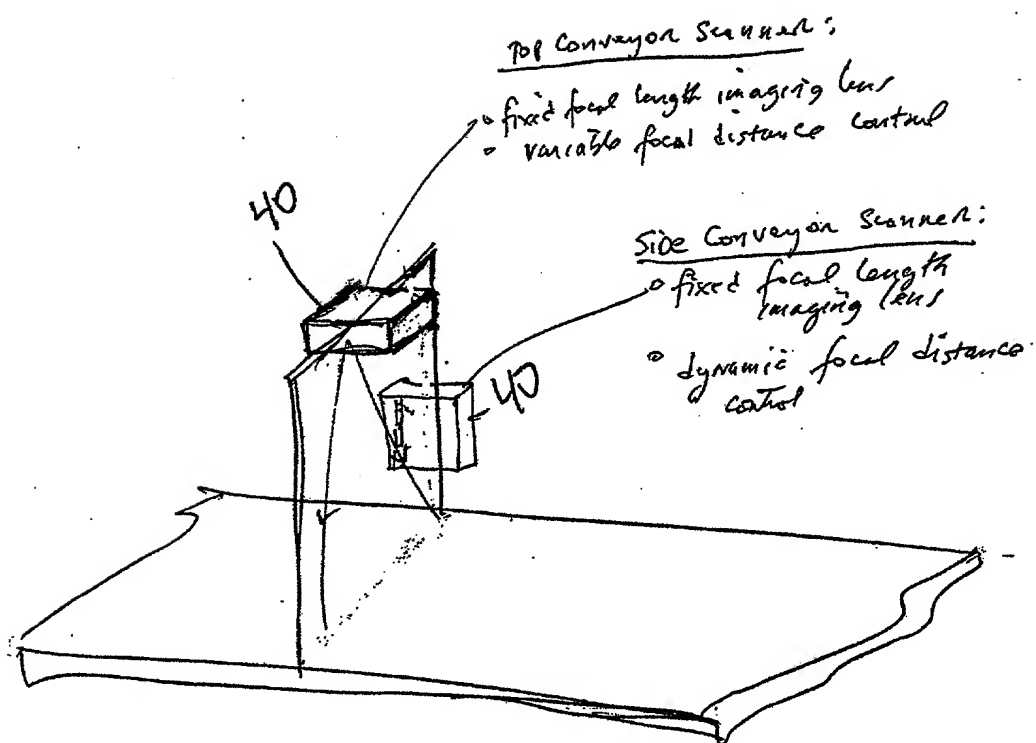 Top Conveyor Scanner:
◦ fixed focal length imaging lens
◦ variable focal distance control
40
Side Conveyor Scanner:
◦ fixed focal length
imaging lens
40
◦ dynamic focal distance
control